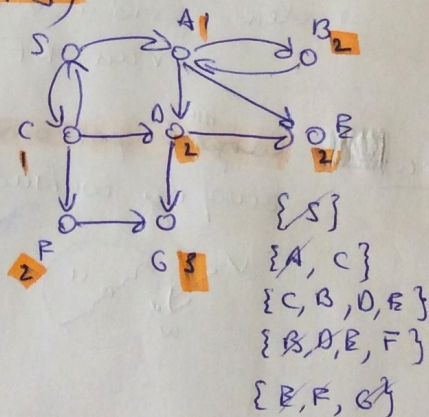 A 1
S
B 2
C
1
D
2
E
2
F
2
G 3
{S}
{A, C}
{C, B, D, E}
{B, D, E, F}
{E, F, G}